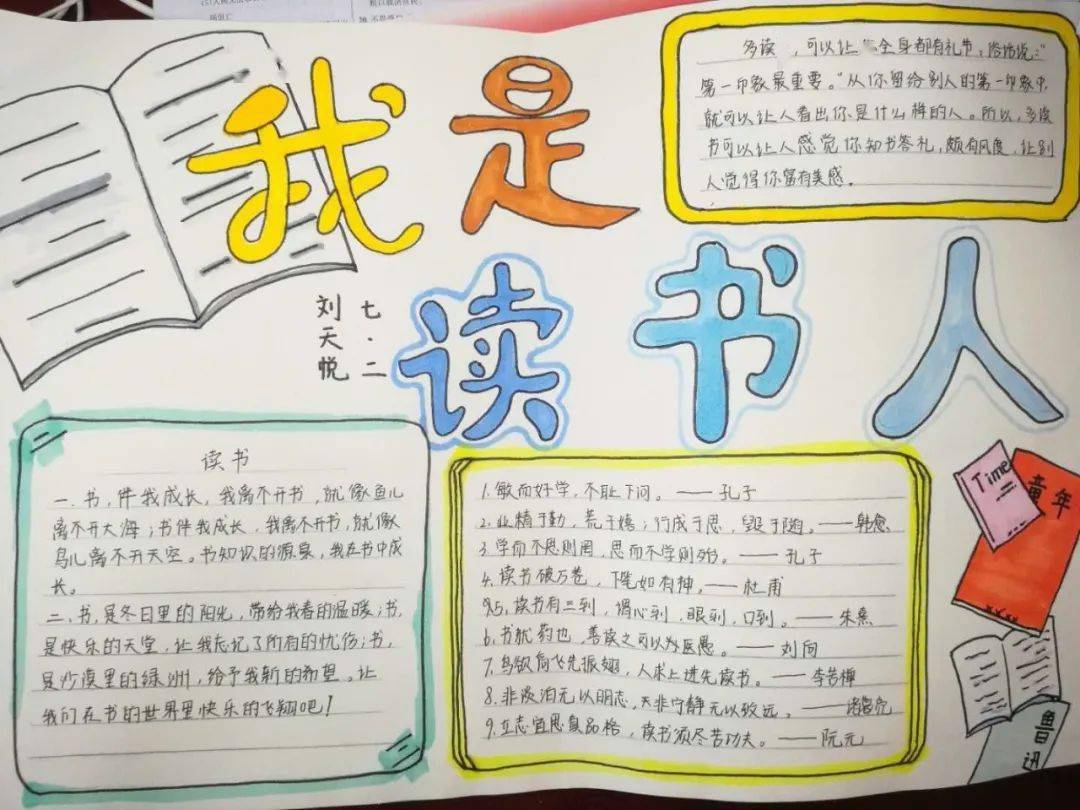 我是
多读 ，可以让 全身都有礼节，俗话说："
第一印象最重要。"从你留给别人的第一印象中，
就可以让人看出你是什么样的人。所以，多读
书可以让人感觉你知书答礼，颇有风度，让别
人觉得你留有美感。
读书人
七·二
刘天悦
读书
一.书，伴我成长，我离不开书，就像鱼儿
离不开大海；书伴我成长，我离不开书，就像
鸟儿离不开天空。书知识的源泉，我在书中成
长。
二.书，是冬日里的阳光，带给我春的温暖；书，
是快乐的天堂，让我忘记了所有的忧伤；书，
是沙漠里的绿洲，给予我新的希望。让
我们在书的世界里快乐的飞翔吧！
1.敏而好学，不耻下问。——孔子
2.业精于勤，荒于嬉；行成于思，毁于随。——韩愈
3.学而不思则罔，思而不学则殆。——孔子
4.读书破万卷，下笔如有神，——杜甫
5.读书有三到，谓心到，眼到，口到。——朱熹
6.书犹药也，善读之可以医愚。——刘向
7.鸟欲高飞先振翅，人求上进先读书。——李苦禅
8.非淡泊无以明志，非宁静无以致远。——诸葛亮
9.立志宜思真品格，读书须尽苦功夫。——阮元
Time
童年
鲁迅